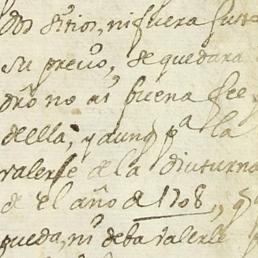 dos sitios, ni fuera justo
su precio, se quedara
dro no ni buena fee
de ella, y aunq pa la
valerse de la diuturna
de el año de 1708, y
pueda, ni deba valerse